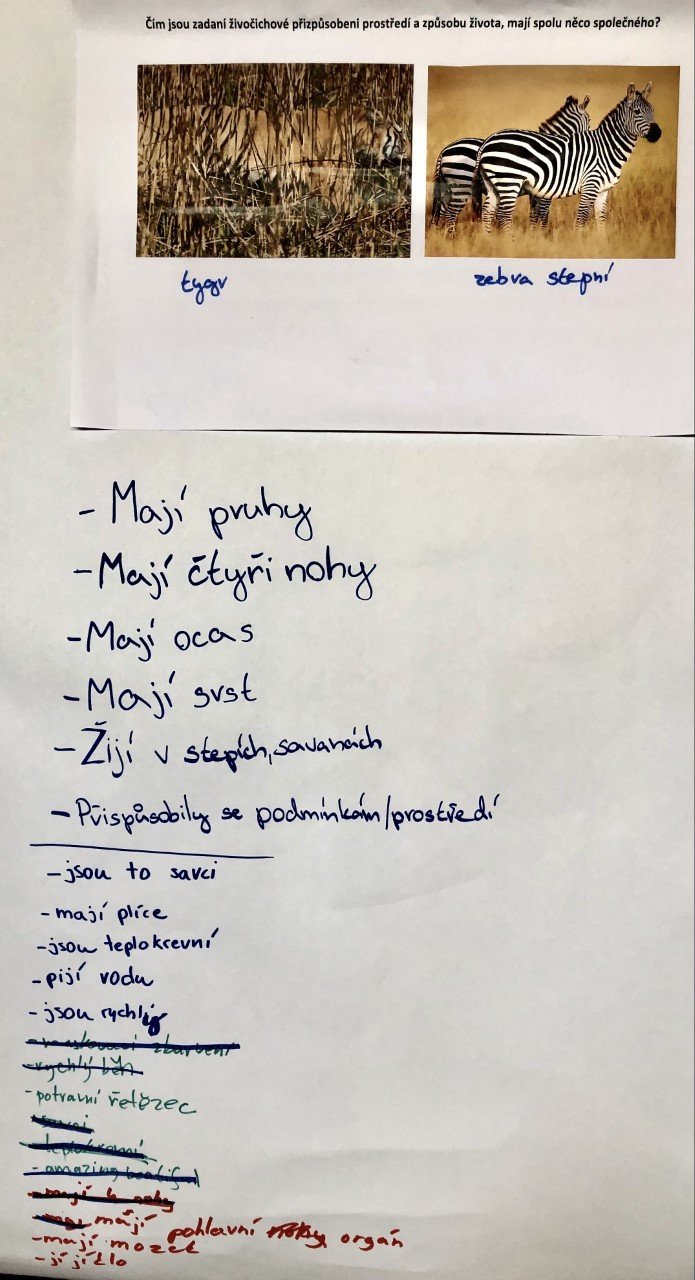 Čím jsou zadaní živočichové přizpůsobeni prostředí a způsobu života, mají spolu něco společného?
tygr
zebra stepní
- Mají pruhy
- Mají čtyři nohy
- Mají ocas
- Mají srst
- Žijí v stepích, savanách
- Přispůsobily se podmínkám/prostředí
- jsou to savci
- mají plíce
- jsou teplokrevní
- pijí vodu
- jsou rychlý
- maskovací zbarvení
- rychlý běh
- potravní řetězec
- savci
- teplokrevní
- amazing
- mají 4 nohy
mají pohlavní orgán
- mají mozek
- jí jídlo